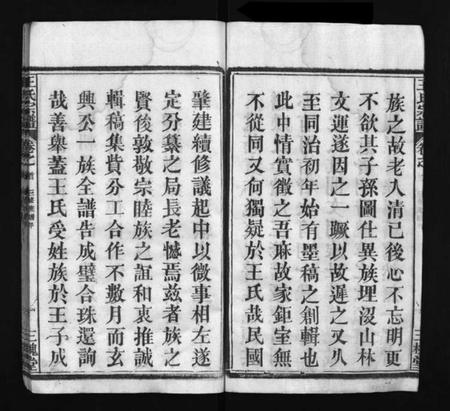 族之故老人清已後心不忘明更
不欲其子孫圖仕異族埋沒山林
文運遂因之一蹶以故遲之又久
至同治初年始有墨稿之創輯也
此中情實徵之吾麻故家鉅室無
不從同又何獨疑於王氏哉民國
肇建續修議起中以微事相左遂
定分纂之局長老憾焉兹者族之
賢後敦敬宗睦族之誼和衷推誠
輯稿集貲分工合作不數月而玄
興公一族全譜告成璧合珠還詢
哉善舉蓋王氏受姓族於王子成
王氏宗譜
卷之
三槐堂